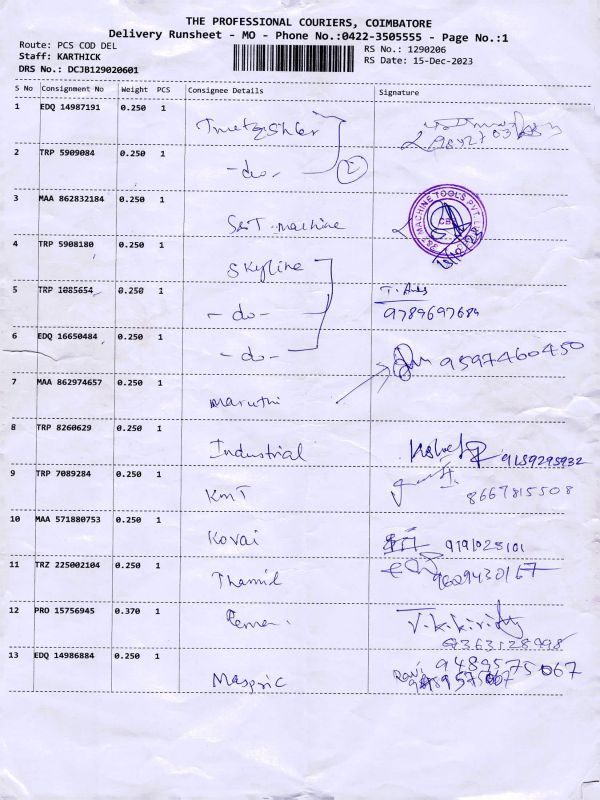 THE PROFESSIONAL COURIERS, COIMBATORE
Delivery Runsheet - MO - Phone No.:0422-3505555 - Page No.:1
Route: PCS COD DEL
RS No.: 1290206
Staff: KARTHICK
RS Date: 15-Dec-2023
DRS No.: DCJB129020601
S No Consignment No Weight PCS Consignee Details Signature
1 EDQ 14987191 0.250 1
2 TRP 5909084 0.250 1 -do- 2
3 MAA 862832184 0.250 1 S&T machine
S&T MACHINE TOOLS PVT. LTD
4 TRP 5908180 0.250 1 Skyline
5 TRP 1085654 0.250 1 -do- 9789697684
6 EDQ 16650484 0.250 1 -do- 9597460450
7 MAA 862974657 0.250 1 maruthi
8 TRP 8260629 0.250 1 Industrial 9159295932
9 TRP 7089284 0.250 1 KMT 8667815508
10 MAA 571880753 0.250 1 Kovai 9191025101
11 TRZ 225002104 0.250 1 Thamil 9629430167
12 PRO 15756945 0.370 1 V.K.Kirithy
9363128998
13 EDQ 14986884 0.250 1 Maspric Ravi 9489575067